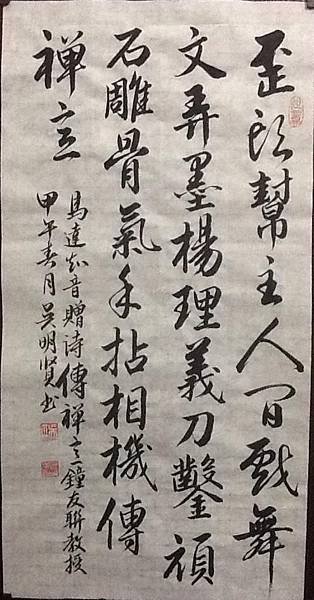 歪頭幫主人間戲舞
文弄墨楊理義刀鑿頑
石雕骨氣手拈相機傳
禪意
馬達知音贈诗傳禪意鐘友聯教授
甲午春月吳明賢书